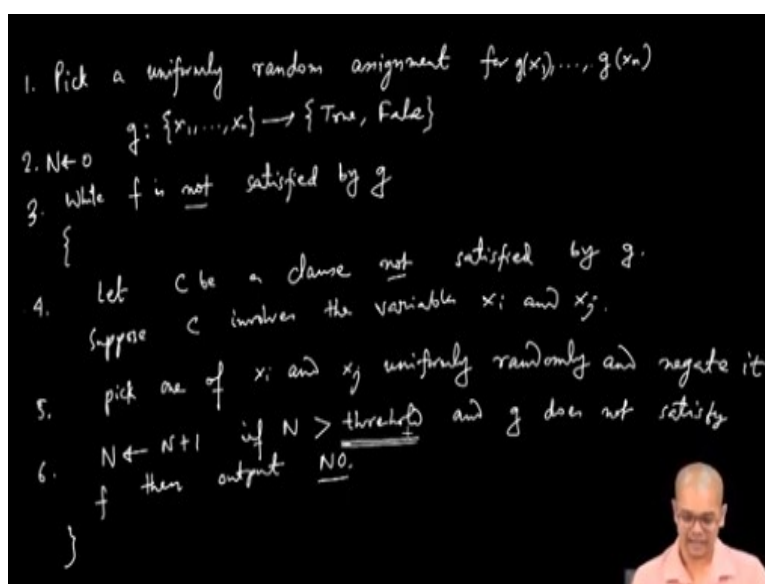 1. Pick a uniformly random assignment for g(x₁), ..., g(xₙ)
g: {x₁, ..., xₙ} → {True, False}
2. N ← 0
3. While f is not satisfied by g
{
4. Let C be a clause not satisfied by g.
Suppose C involves the variable xᵢ and xⱼ.
5. pick one of xᵢ and xⱼ uniformly randomly and negate it
6. N ← N+1 if N > threshold and g does not satisfy
f then output NO.
}